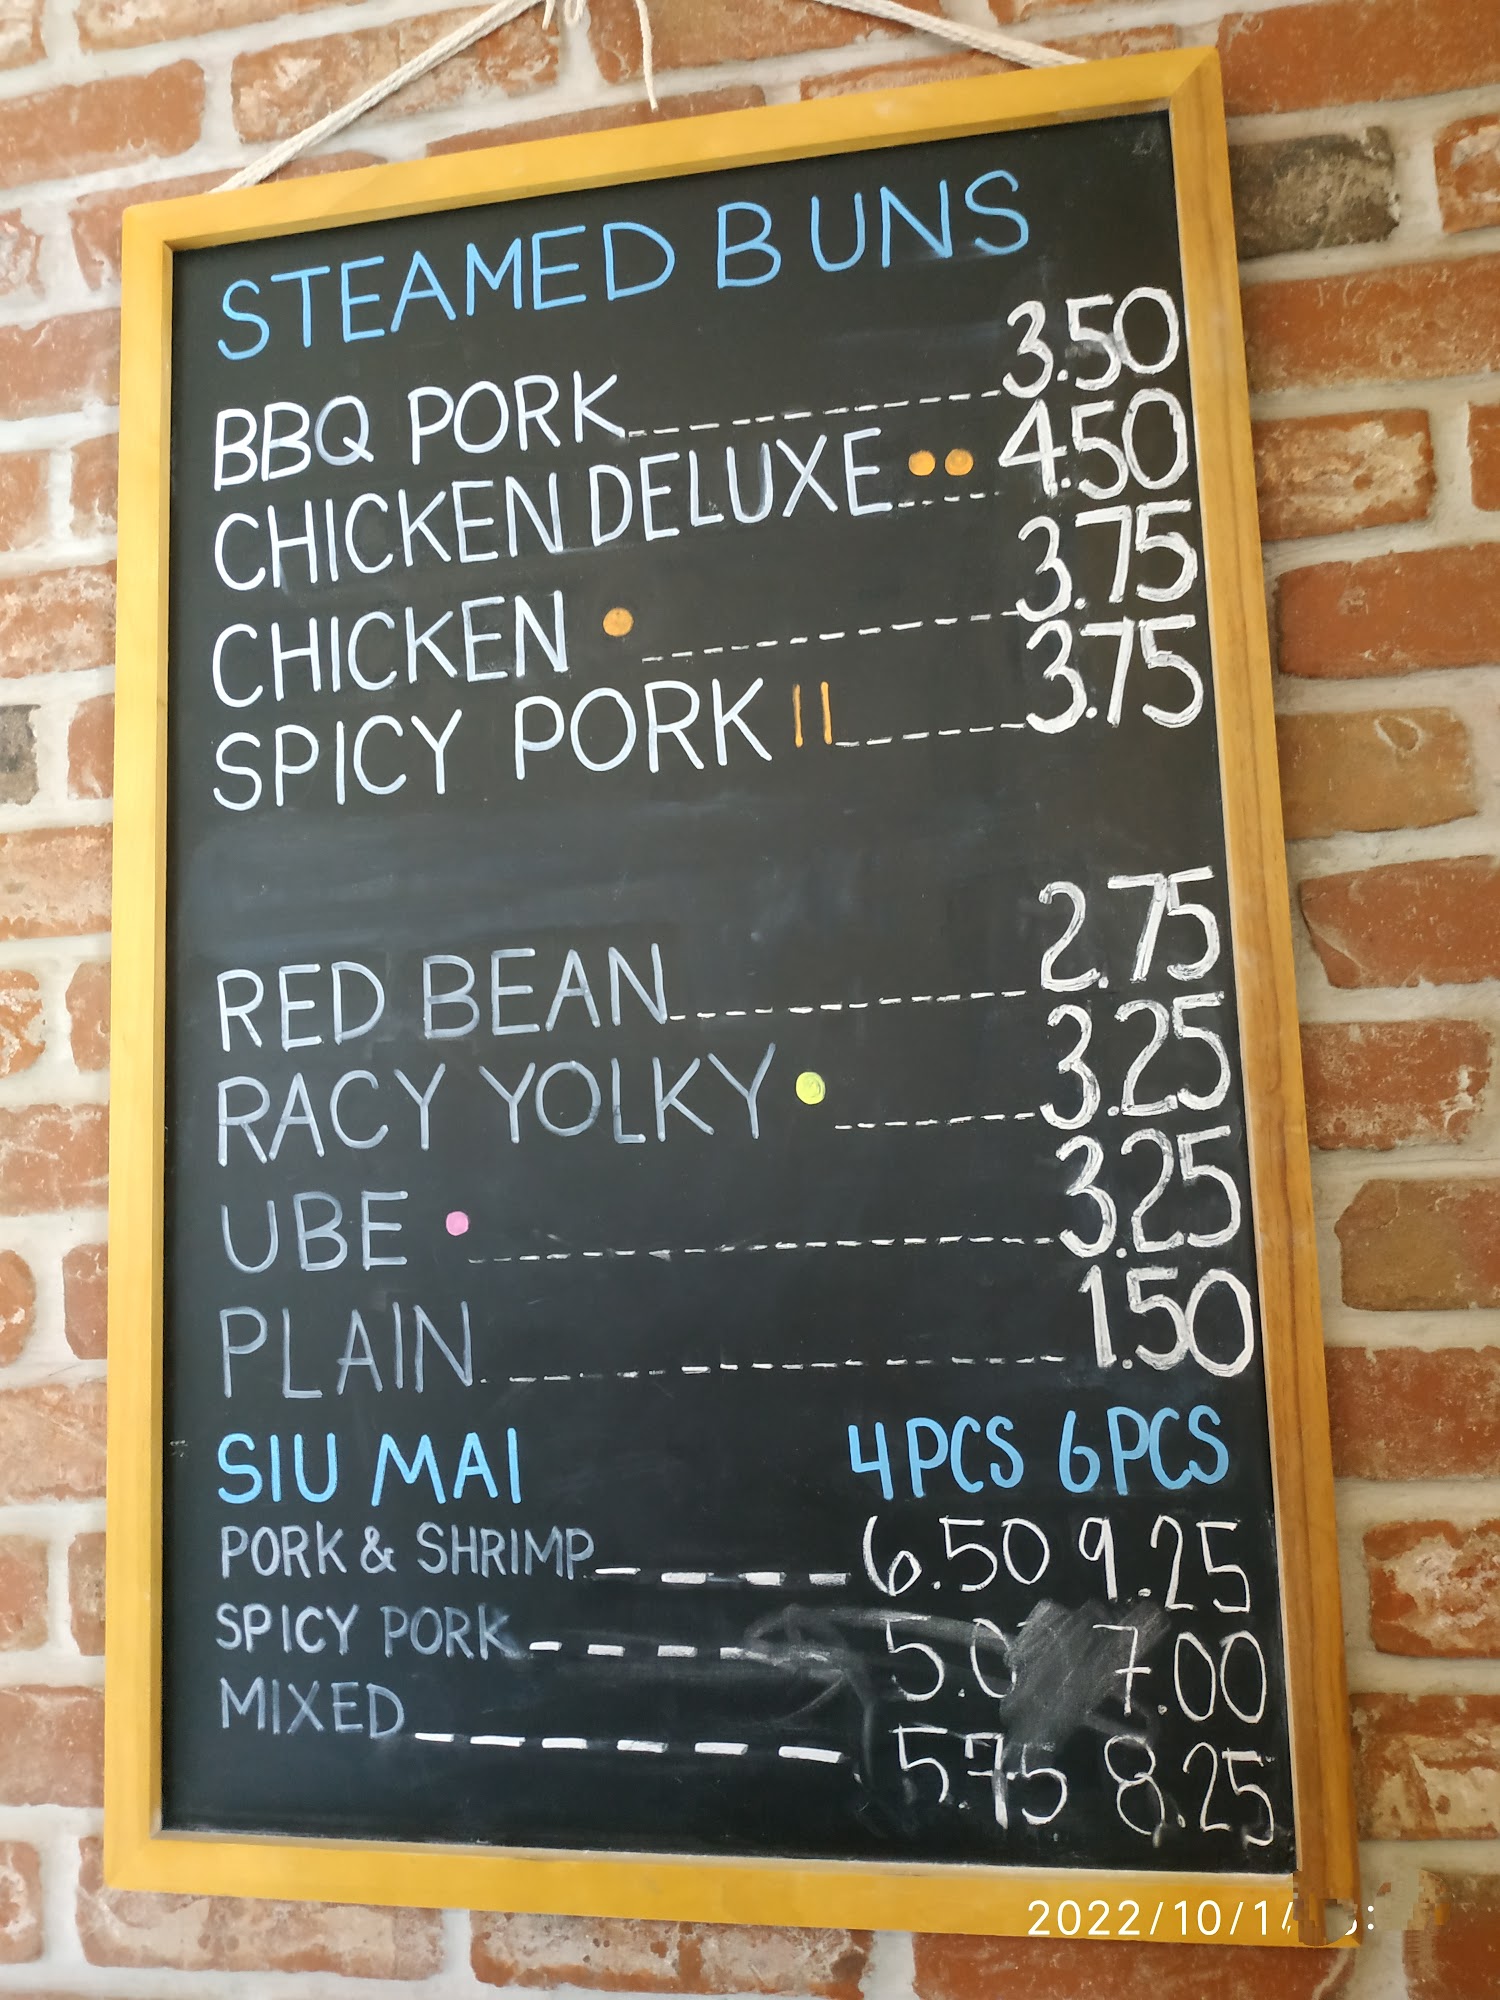 STEAMED BUNS
BBQ PORK 3.50
CHICKEN DELUXE 4.50
CHICKEN 3.75
SPICY PORK 3.75
RED BEAN 2.75
RACY YOLKY 3.25
UBE 3.25
PLAIN 1.50
SIU MAI 4PCS 6PCS
PORK & SHRIMP 6.50 9.25
SPICY PORK 5.0 7.00
MIXED 5.75 8.25
2022/10/1